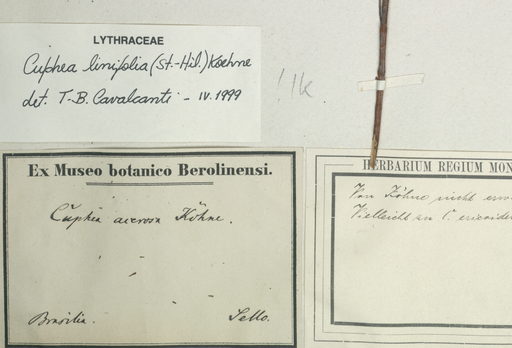 LYTHRACEAE
Cuphea linifolia (St.-Hil.) Koehne
det. T.B. Cavalcanti - IV. 1999
!!k
Ex Museo botanico Berolinensi.
Cuphea acerosa Köhne.
Brasilia. Sello.
HERBARIUM REGIUM MON
Von Köhne nicht erw
Vielleicht an C. ericoides